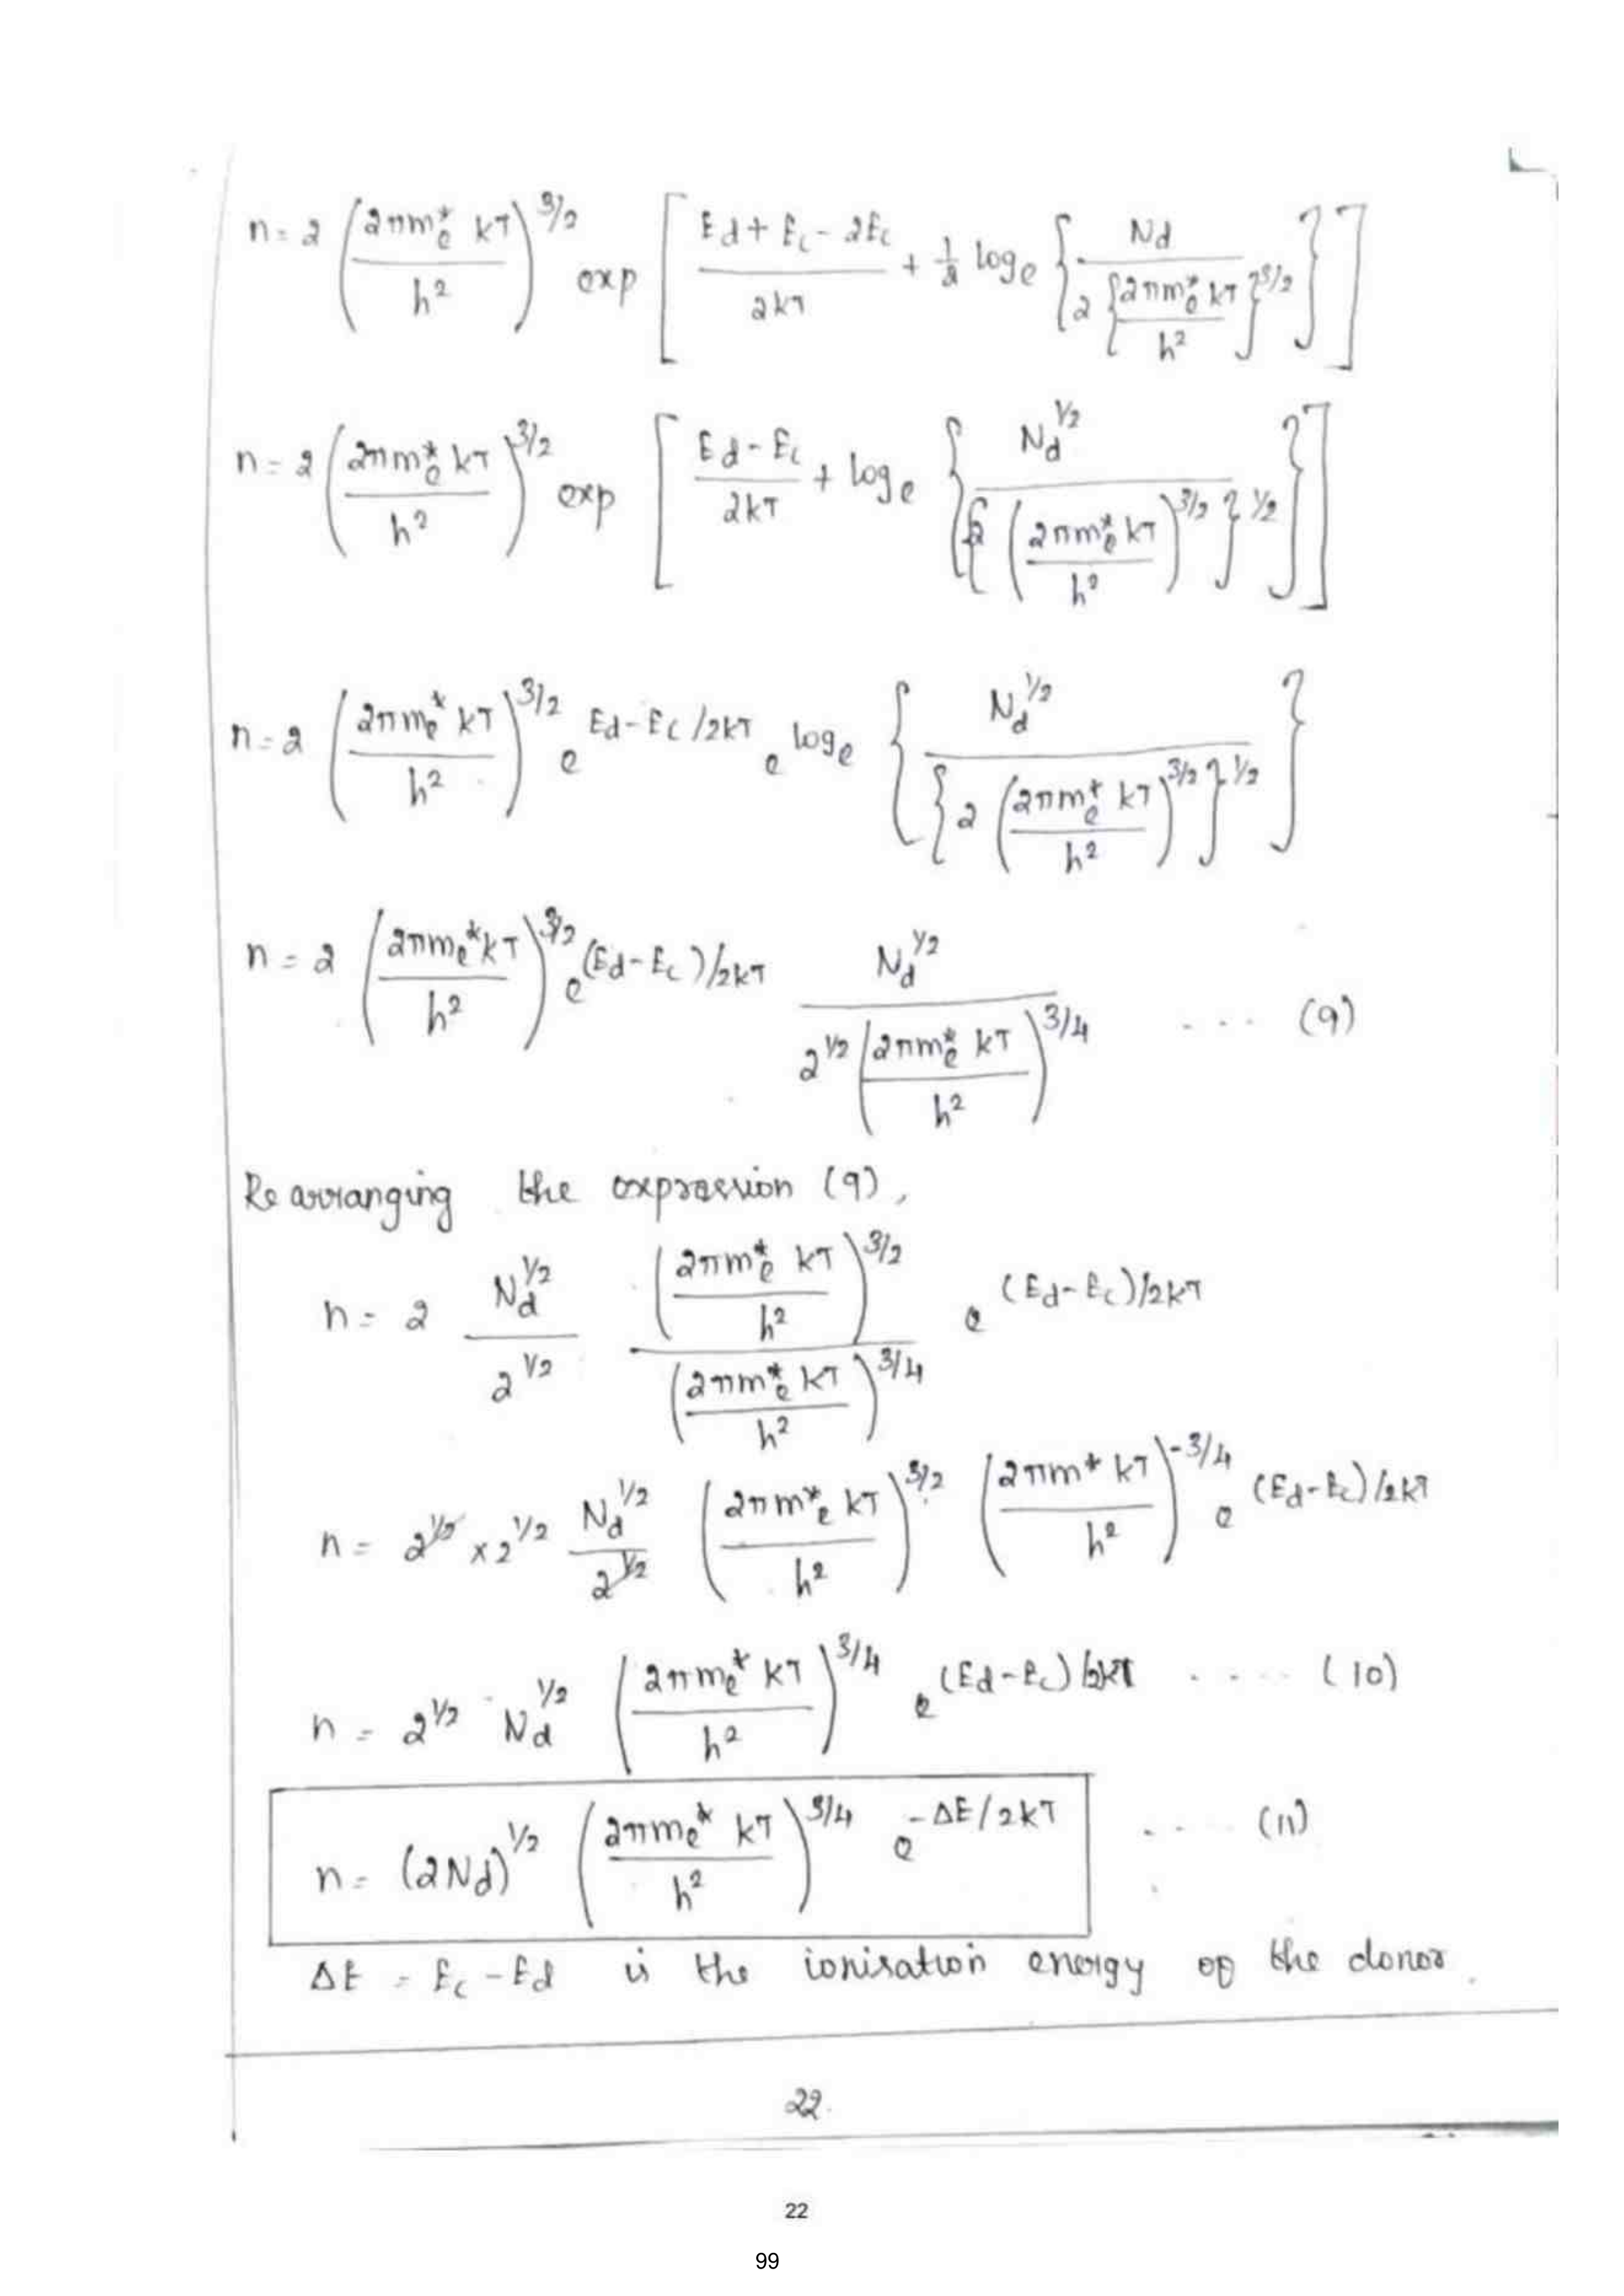 n = 2 (2πm*e kT / h²)^3/2 exp [ Ed + Ec - 2Ec / 2kT + 1/2 loge { Nd / 2 {2πm*e kT / h²}^3/2 } ]
n = 2 (2πm*e kT / h²)^3/2 exp [ Ed - Ec / 2kT + loge { Nd^1/2 / {2 (2πm*e kT / h²)^3/2}^1/2 } ]
n = 2 (2πm*e kT / h²)^3/2 e^Ed-Ec/2kT e^loge { Nd^1/2 / {2 (2πm*e kT / h²)^3/2}^1/2 }
n = 2 (2πme*kT / h²)^3/2 e^(Ed-Ec)/2kT Nd^1/2 / 2^1/2 (2πm*e kT / h²)^3/4 ... (9)
Rearranging the expression (9),
n = 2 Nd^1/2 / 2^1/2 (2πm*e kT / h²)^3/2 / (2πm*e kT / h²)^3/4 e^(Ed-Ec)/2kT
n = 2^1/2 x 2^1/2 Nd^1/2 / 2^1/2 (2πm*e kT / h²)^3/2 (2πm* kT / h²)^-3/4 e^(Ed-Ec)/2kT
n = 2^1/2 Nd^1/2 (2πme* kT / h²)^3/4 e^(Ed-Ec)/2kT .... (10)
n = (2Nd)^1/2 (2πme* kT / h²)^3/4 e^-ΔE/2kT .... (11)
ΔE = Ec - Ed is the ionisation energy of the donor.
22.
22
99